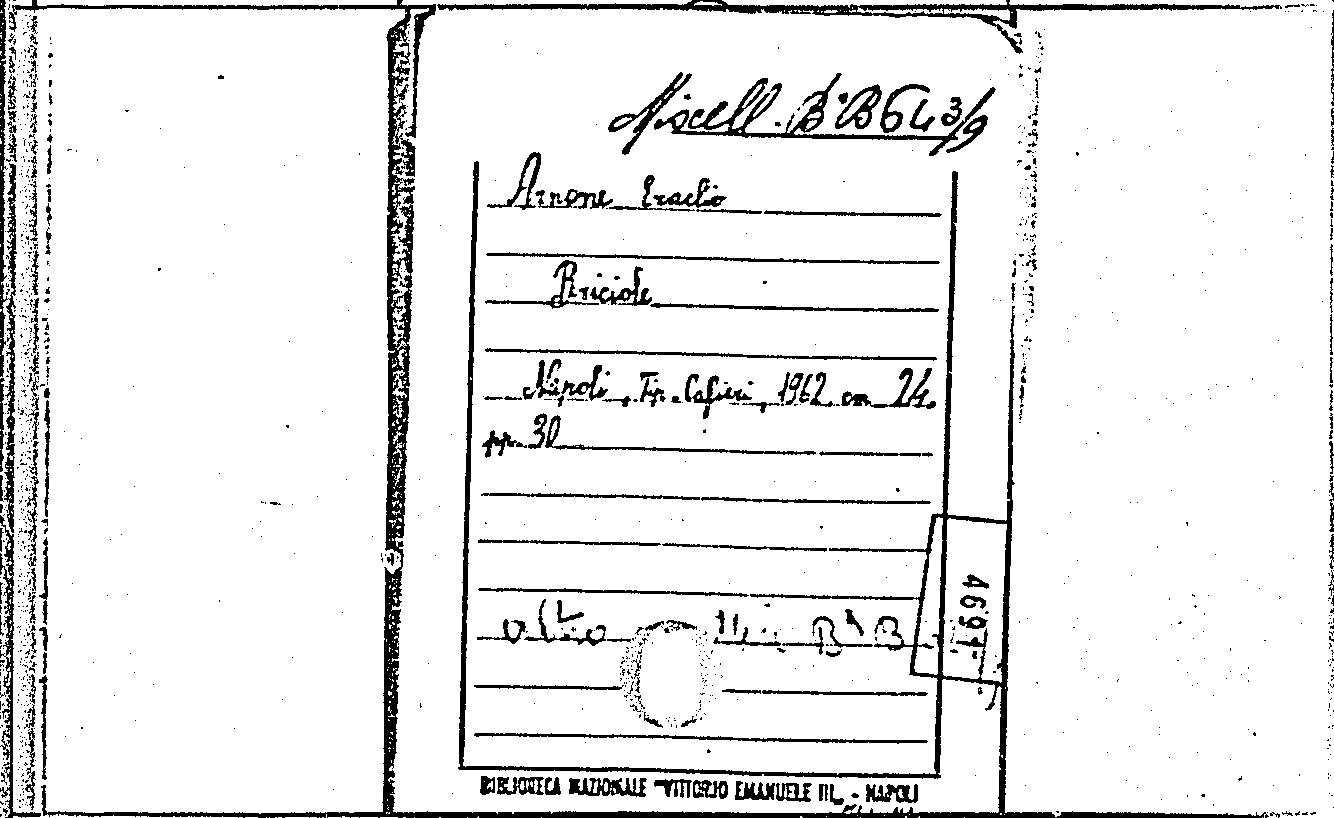 Miscell. B B 643/9
Arnone Eraclio
Briciole
Napoli, Tip. Cafieri, 1962 cm 24.
pp. 30
B B
BIBLIOTECA NAZIONALE "VITTORIO EMANUELE III" - NAPOLI